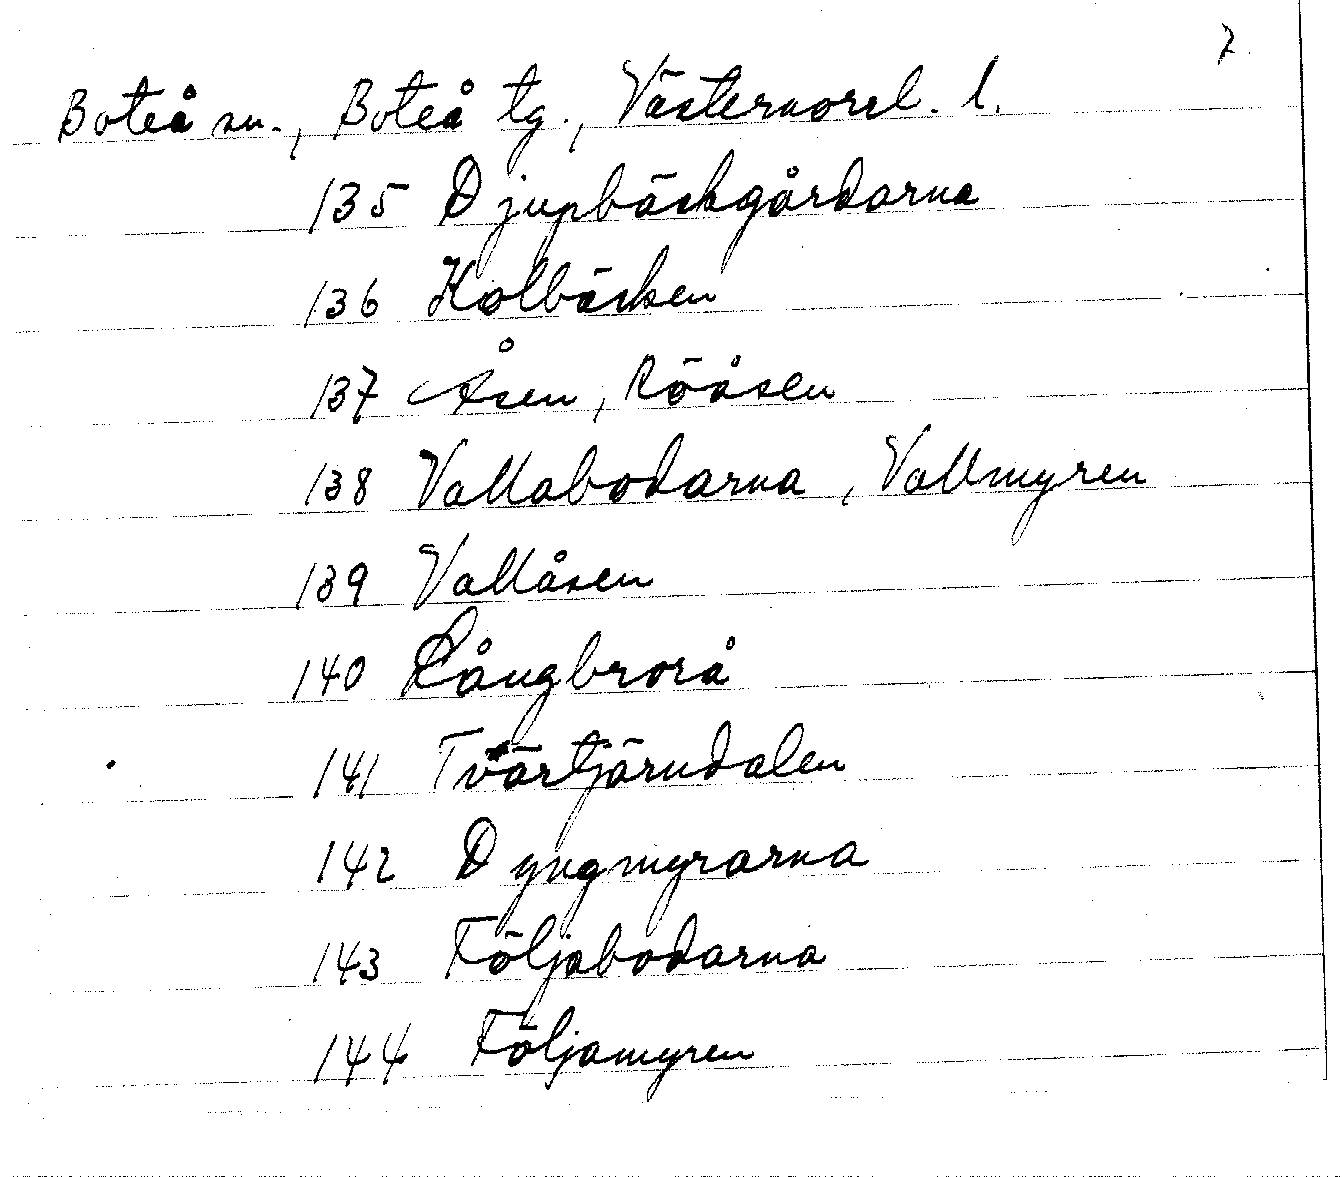 7.
Boteå sn., Boteå tg., Västernorrl. l.
135 Djupbäckgårdarna
136 Holbäcken
137 Åsen, Rööåsen
138 Vallabodarna, Vallmyren
139 Vallåsen
140 Långbrorå
141 Tvärtjärndalen
142 Dyngmyrarna
143 Följabodarna
144 Följamyren